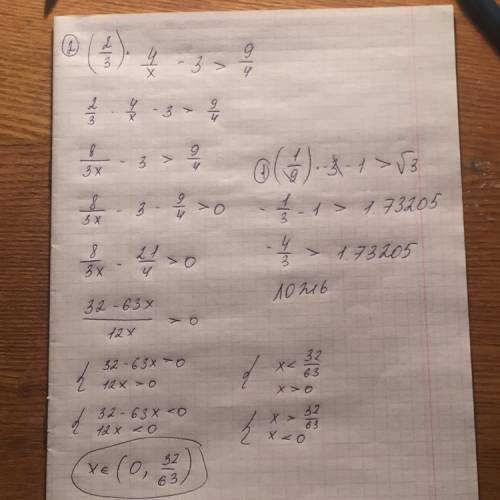 ② (2/3) · 4/x - 3 > 9/4
2/3 · 4/x - 3 > 9/4
8/3x - 3 > 9/4
8/3x - 3 - 9/4 > 0
8/3x - 21/4 > 0
32 - 63x / 12x > 0
{ 32 - 63x > 0
12x > 0
{ x < 32/63
x > 0
{ 32 - 63x < 0
12x < 0
{ x > 32/63
x < 0
x ∈ (0, 32/63)
① (1/9) · -3 - 1 > √3
- 1/3 - 1 > 1.73205
- 4/3 > 1.73205
ложь